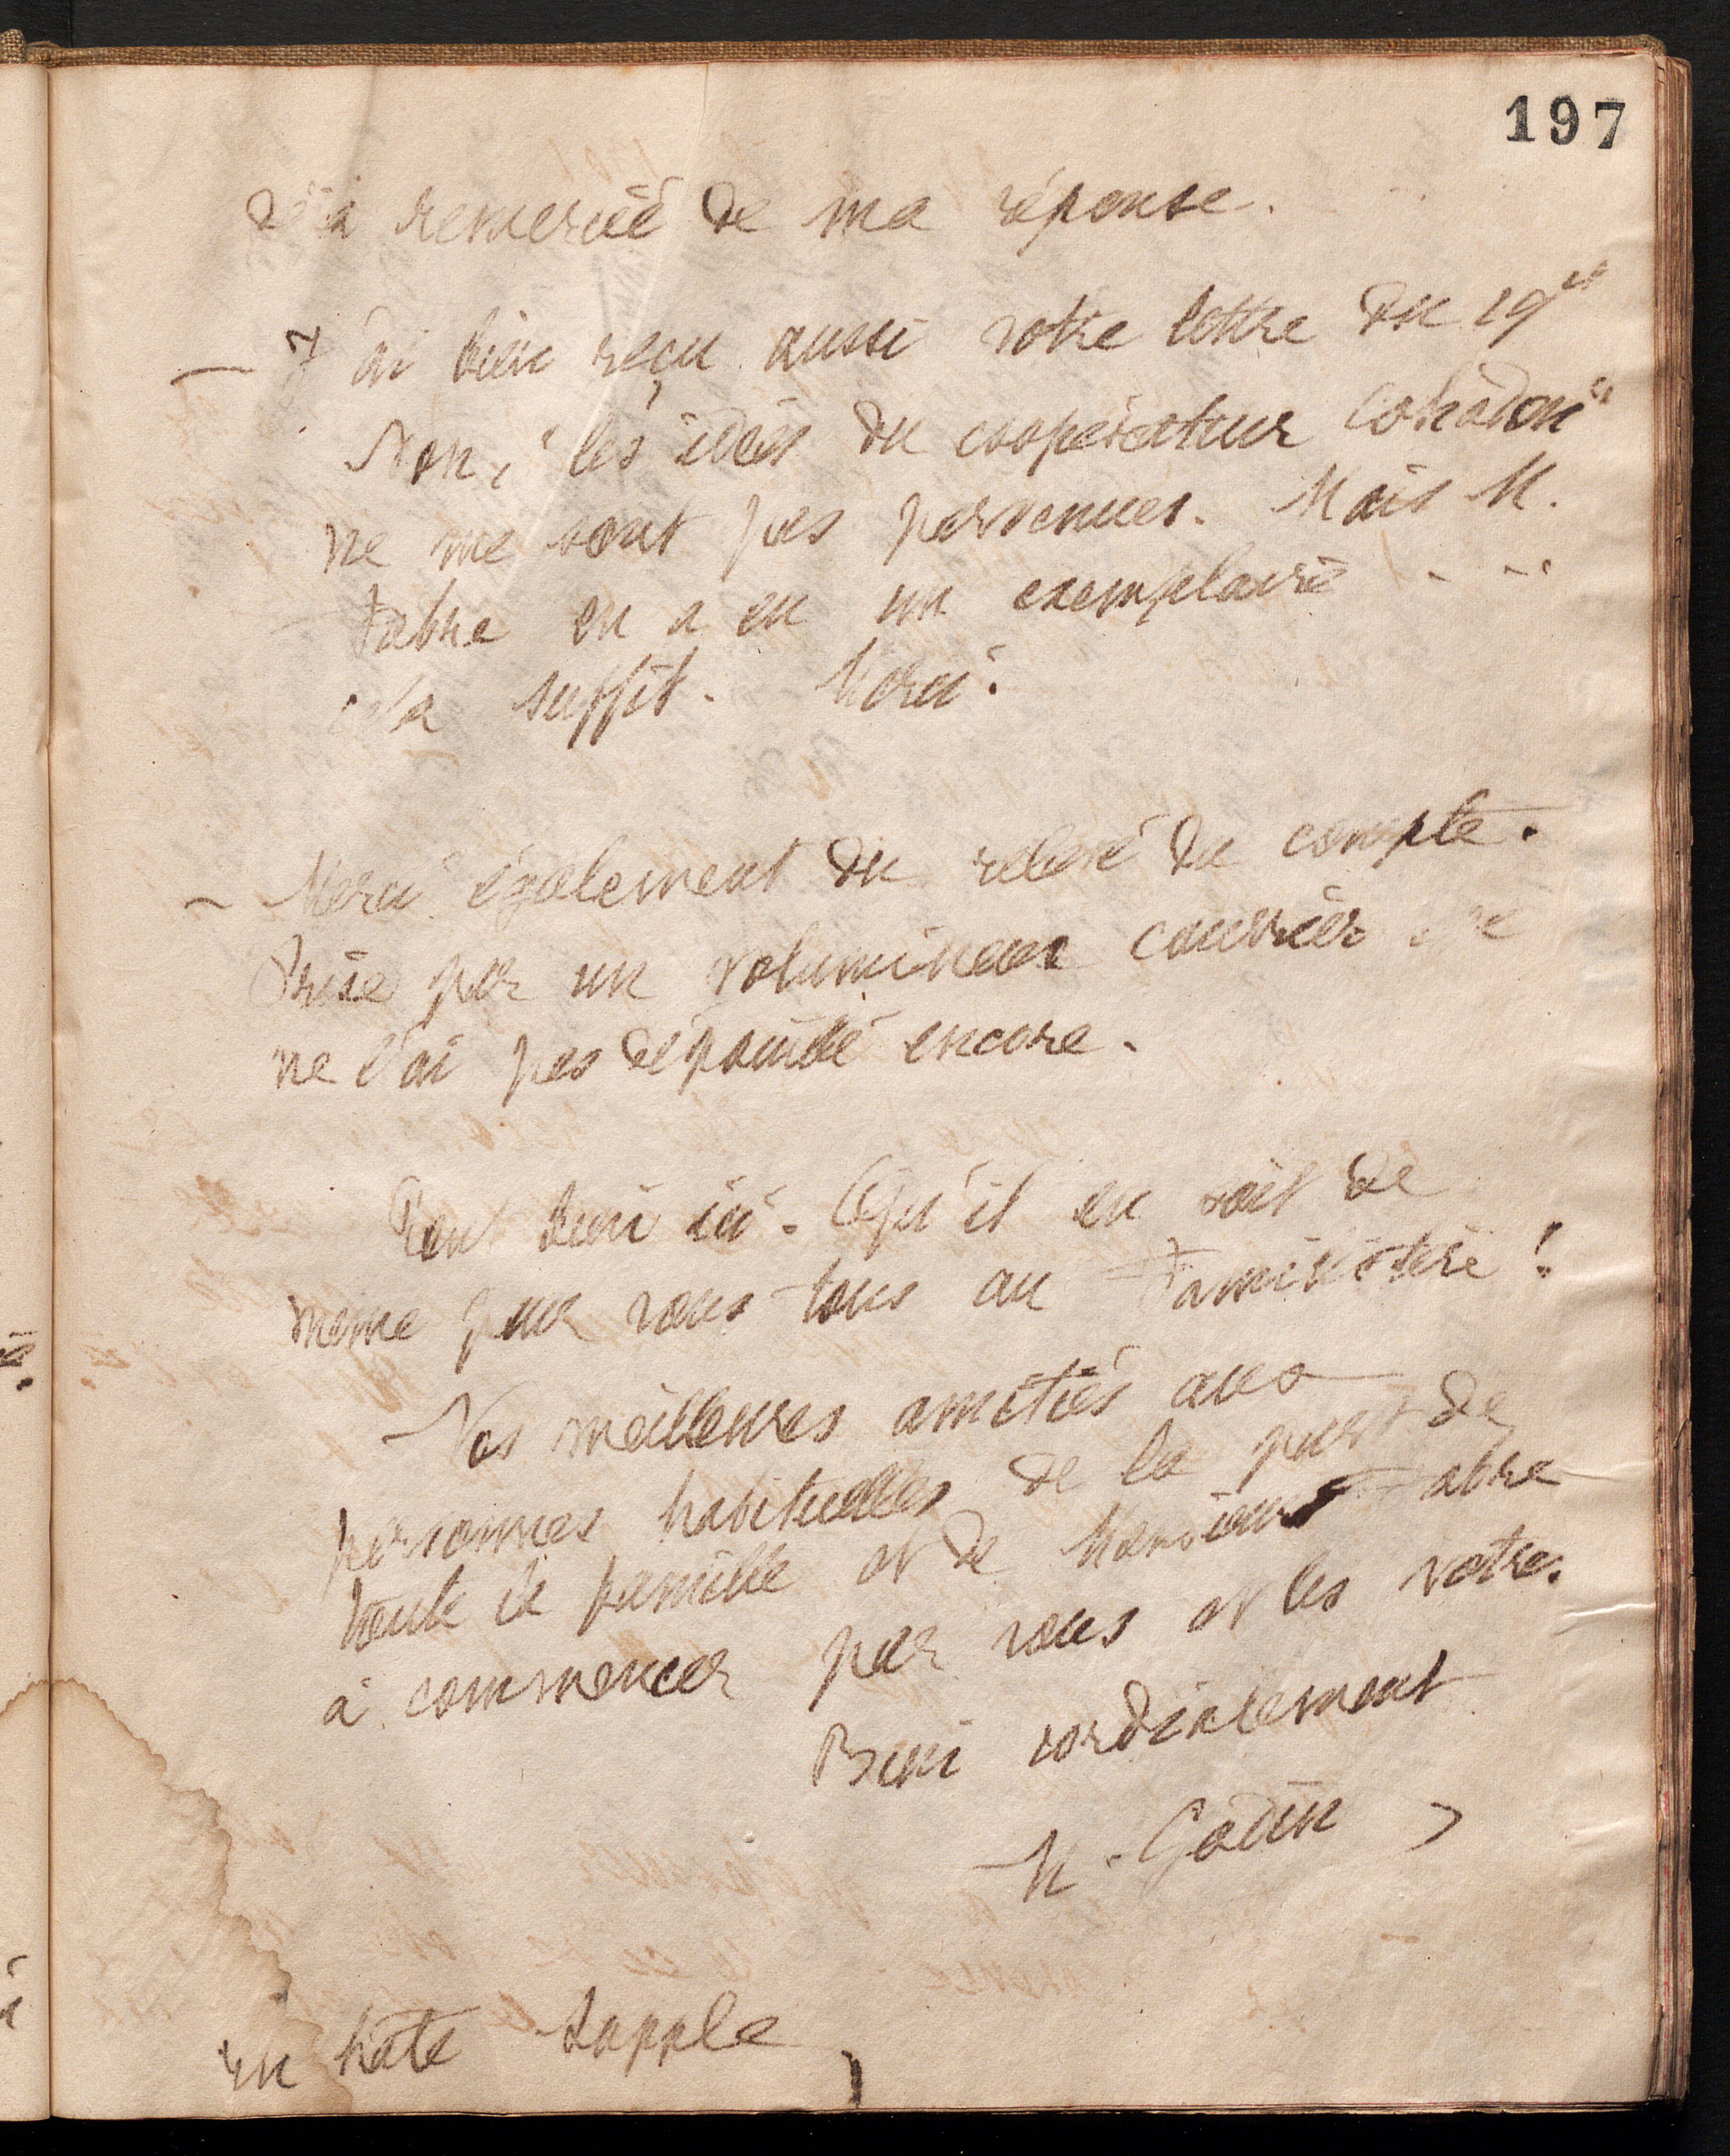 197
déjà remerciée de ma réponse.
— J'ai bien reçu aussi votre lettre du 19ct
Non, "les idées du coopérateur Cohadon"
ne me sont pas parvenues. Mais M.
Fabre en a eu un exemplaire ...
cela suffit. Merci.
— Merci également du relevé de compte.
Prise par un volumineux courrier je
ne l'ai pas dépouillé encore.
Tout bien ici. Qu'il en soit de
même pour vous tous au Familistère !
Nos meilleures amitiés aux
personnes habituelles de la part de
toute la famille et de Monsieur Fabre
à commencer par vous et les votres.
Bien cordialement
M. Godin
en hâte